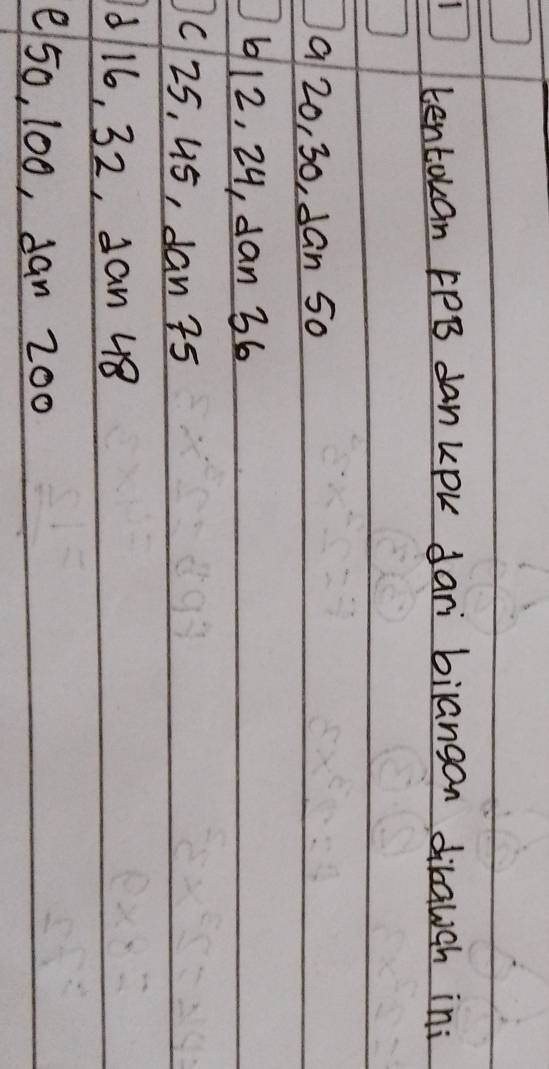 1 tentukan FPB dan KPK dari bilangan dibawah ini
a 20, 30, dan 50
b 12, 24, dan 36
c 25, 45, dan 75
d 16, 32, dan 48
e 50, 100, dan 200